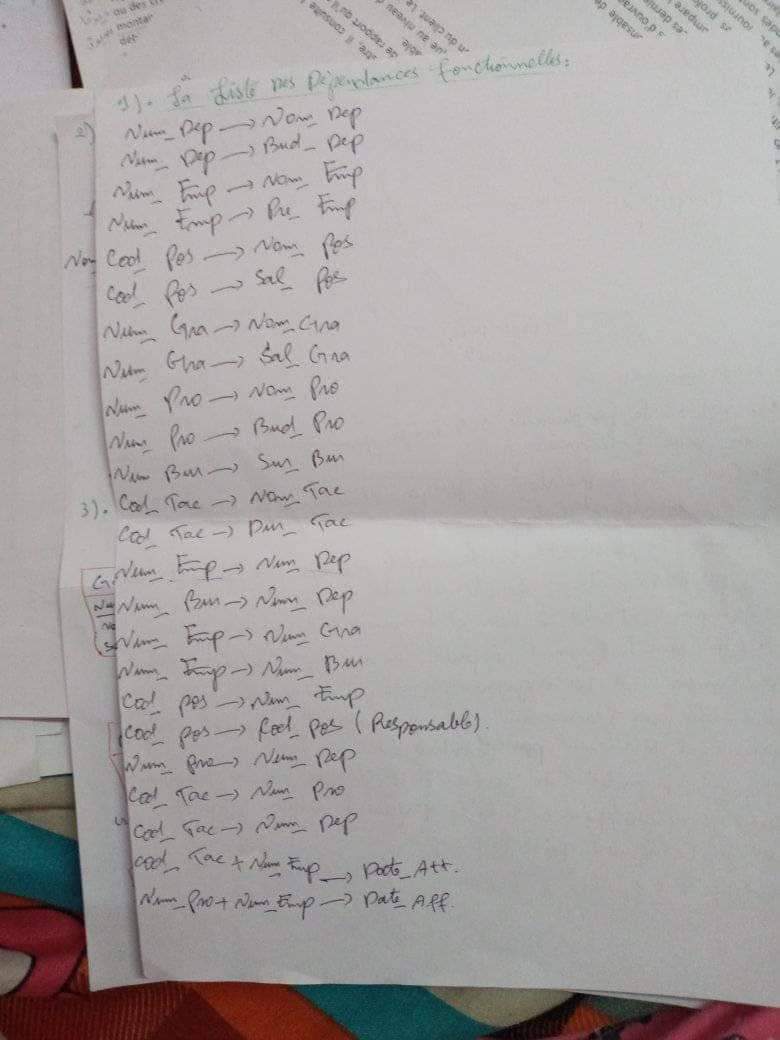 1). La Liste Des Dépendances fonctionnelles:
Num_Dep → Nom_Dep
Num_Dep → Bud_Dep
Num_Emp → Nom_Emp
Num_Emp → Pre_Emp
Cod_Pos → Nom_Pos
Cod_Pos → Sal_Pos
Num_Gra → Nom_Gra
Num_Gra → Sal_Gra
Num_Pro → Nom_Pro
Num_Pro → Bud_Pro
Num_Bur → Sur_Bur
Cod_Tac → Nom_Tac
Cod_Tac → Dur_Tac
Num_Emp → Num_Dep
Num_Bur → Num_Dep
Num_Emp → Num_Gra
Num_Emp → Num_Bur
Cod_pos → Num_Emp
Cod_pos → Cod_pos (Responsable).
Num_Pro → Num_Dep
Cod_Tac → Num_Pro
Cod_Tac → Num_Dep
Cod_Tac + Num_Emp → Date_Att.
Num_Pro + Num_Emp → Date_Aff.
2)
3).
ou des
montar